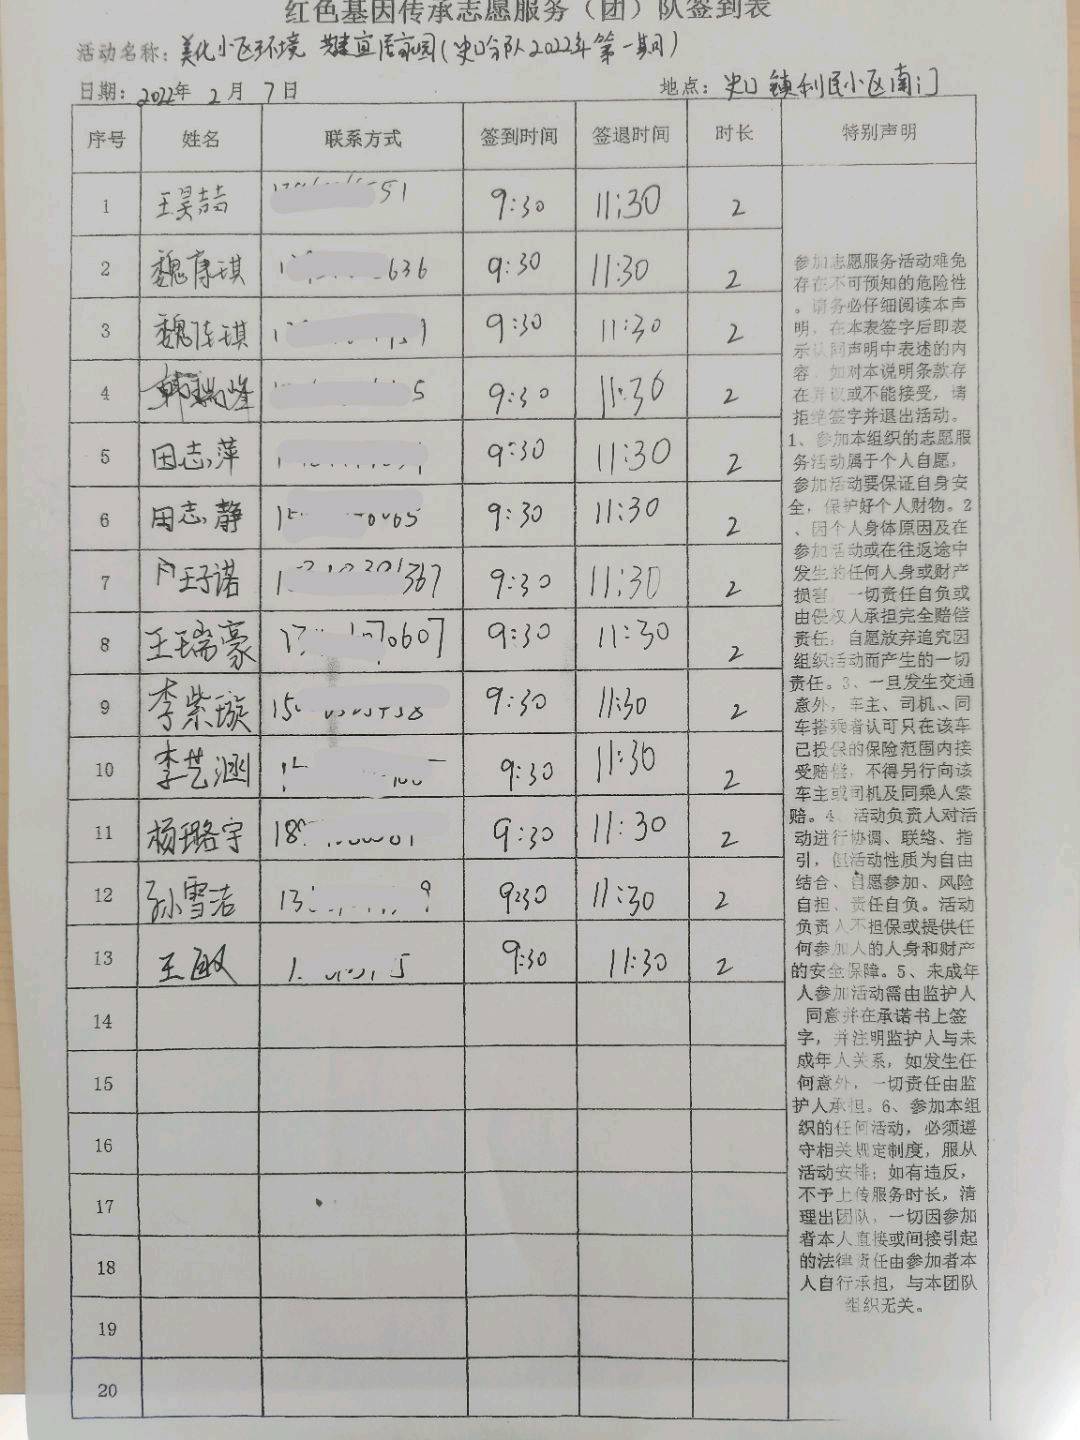 红色基因传承志愿服务（团）队签到表
活动名称：美化小区环境 共建宜居家园（史口分队2022年第一期）
日期：2022年 2月 7日 地点：史口镇利民小区南门
序号 姓名 联系方式 签到时间 签退时间 时长 特别声明
1 王昊喆 51 9:30 11:30 2
2 魏康琪 636 9:30 11:30 2
3 魏琪 9:30 11:30 2
4 韩瑞隆 5 9:30 11:30 2
5 田志萍 9:30 11:30 2
6 田志静 9:30 11:30 2
7 闫王子诺 367 9:30 11:30 2
8 王瑞豪 70607 9:30 11:30 2
9 李紫璇 15 9:30 11:30 2
10 李艺涵 9:30 11:30 2
11 杨璐宇 18 9:30 11:30 2
12 孙雪洁 13 9 9:30 11:30 2
13 王敏 1 5 9:30 11:30 2
14
15
16
17
18
19
20
参加志愿服务活动难免
存在不可预知的危险性
。请务必仔细阅读本声
明，在本表签字后即表
示认同声明中表述的内
容。如对本说明条款存
在异议或不能接受，请
拒绝签字并退出活动。
1、参加本组织的志愿服
务活动属于个人自愿，
参加活动要保证自身安
全，保护好个人财物。2
、因个人身体原因及在
参加活动或在往返途中
发生的任何人身或财产
损害，一切责任自负或
由侵权人承担完全赔偿
责任，自愿放弃追究因
组织活动而产生的一切
责任。3、一旦发生交通
意外，车主、司机、同
车搭乘者认可只在该车
已投保的保险范围内接
受赔偿，不得另行向该
车主或司机及同乘人索
赔。4、活动负责人对活
动进行协调、联络、指
引，但活动性质为自由
结合、自愿参加、风险
自担、责任自负。活动
负责人不担保或提供任
何参加人的人身和财产
的安全保障。5、未成年
人参加活动需由监护人
同意并在承诺书上签
字，并注明监护人与未
成年人关系，如发生任
何意外，一切责任由监
护人承担。6、参加本组
织的任何活动，必须遵
守相关规定制度，服从
活动安排；如有违反，
不予上传服务时长，清
理出团队，一切因参加
者本人直接或间接引起
的法律责任由参加者本
人自行承担，与本团队
组织无关。